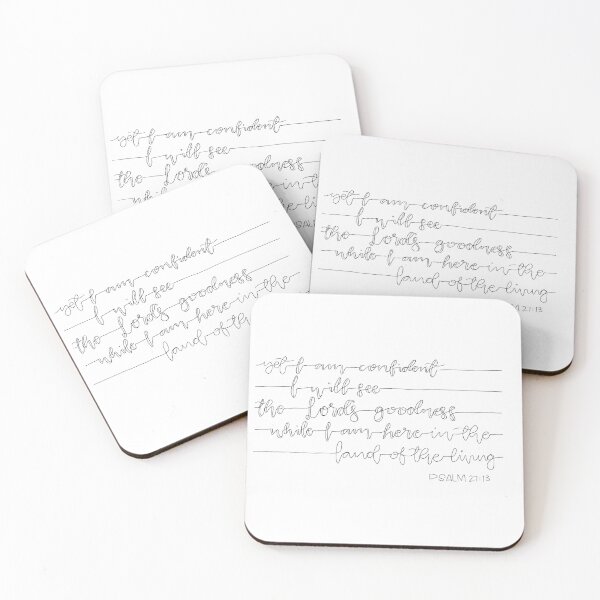 yet I am confident
I will see
the Lord's
yet I am confident
I will see
the Lord's goodness
while I am here in the
land of the living
27:13
yet I am confident
I will see
the Lord's goodness
while I am here in the
land of the
yet I am confident
I will see
the Lord's goodness
while I am here in the
land of the living
PSALM 27:13